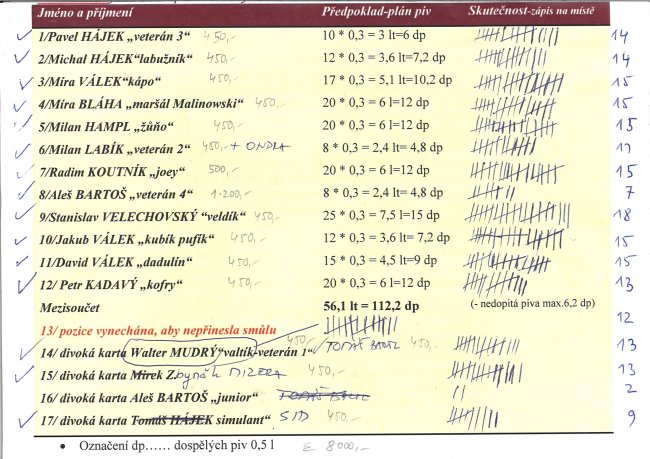 Jméno a příjmení Předpoklad-plán piv Skutečnost-zápis na místě
1/Pavel HÁJEK „veterán 3“ 450,- 10 * 0,3 = 3 lt=6 dp 14
2/Michal HÁJEK“labužník“ 450,- 12 * 0,3 = 3,6 lt=7,2 dp 14
3/Míra VÁLEK“kápo“ 450,- 17 * 0,3 = 5,1 lt=10,2 dp 15
4/Míra BLÁHA „maršál Malinowski“ 450,- 20 * 0,3 = 6 l=12 dp 15
5/Milan HAMPL „žůňo“ 450,- 20 * 0,3 = 6 l=12 dp 15
6/Milan LABÍK „veterán 2“ 450,- + ONDRA 8 * 0,3 = 2,4 lt= 4,8 dp
7/Radim KOUTNÍK „joey“ 500,- 20 * 0,3 = 6 l=12 dp 15
8/Aleš BARTOŠ „veterán 4“ 1.200,- 8 * 0,3 = 2,4 lt= 4,8 dp 7
9/Stanislav VELECHOVSKÝ “veldík“ 450,- 25 * 0,3 = 7,5 l=15 dp 18
10/Jakub VÁLEK „kubík pufík“ 450,- 12 * 0,3 = 3,6 lt= 7,2 dp 15
11/David VÁLEK „dadulín“ 450,- 15 * 0,3 = 4,5 lt=9 dp 15
12/ Petr KADAVÝ „kofry“ 450,- 20 * 0,3 = 6 l=12 dp 13
Mezisoučet 56,1 lt = 112,2 dp (- nedopitá piva max.6,2 dp)
13/ pozice vynechána, aby nepřinesla smůlu 12
14/ divoká karta Walter MUDRÝ“valtík-veterán 1“ TOMÁŠ 450,- 13
15/ divoká karta Mirek Z. MIZERA 450,- 13
16/ divoká karta Aleš BARTOŠ „junior“ 2
17/ divoká karta Tomáš HÁJEK simulant“ SID 450,- 9
• Označení dp…… dospělých piv 0,5 l 8000,-